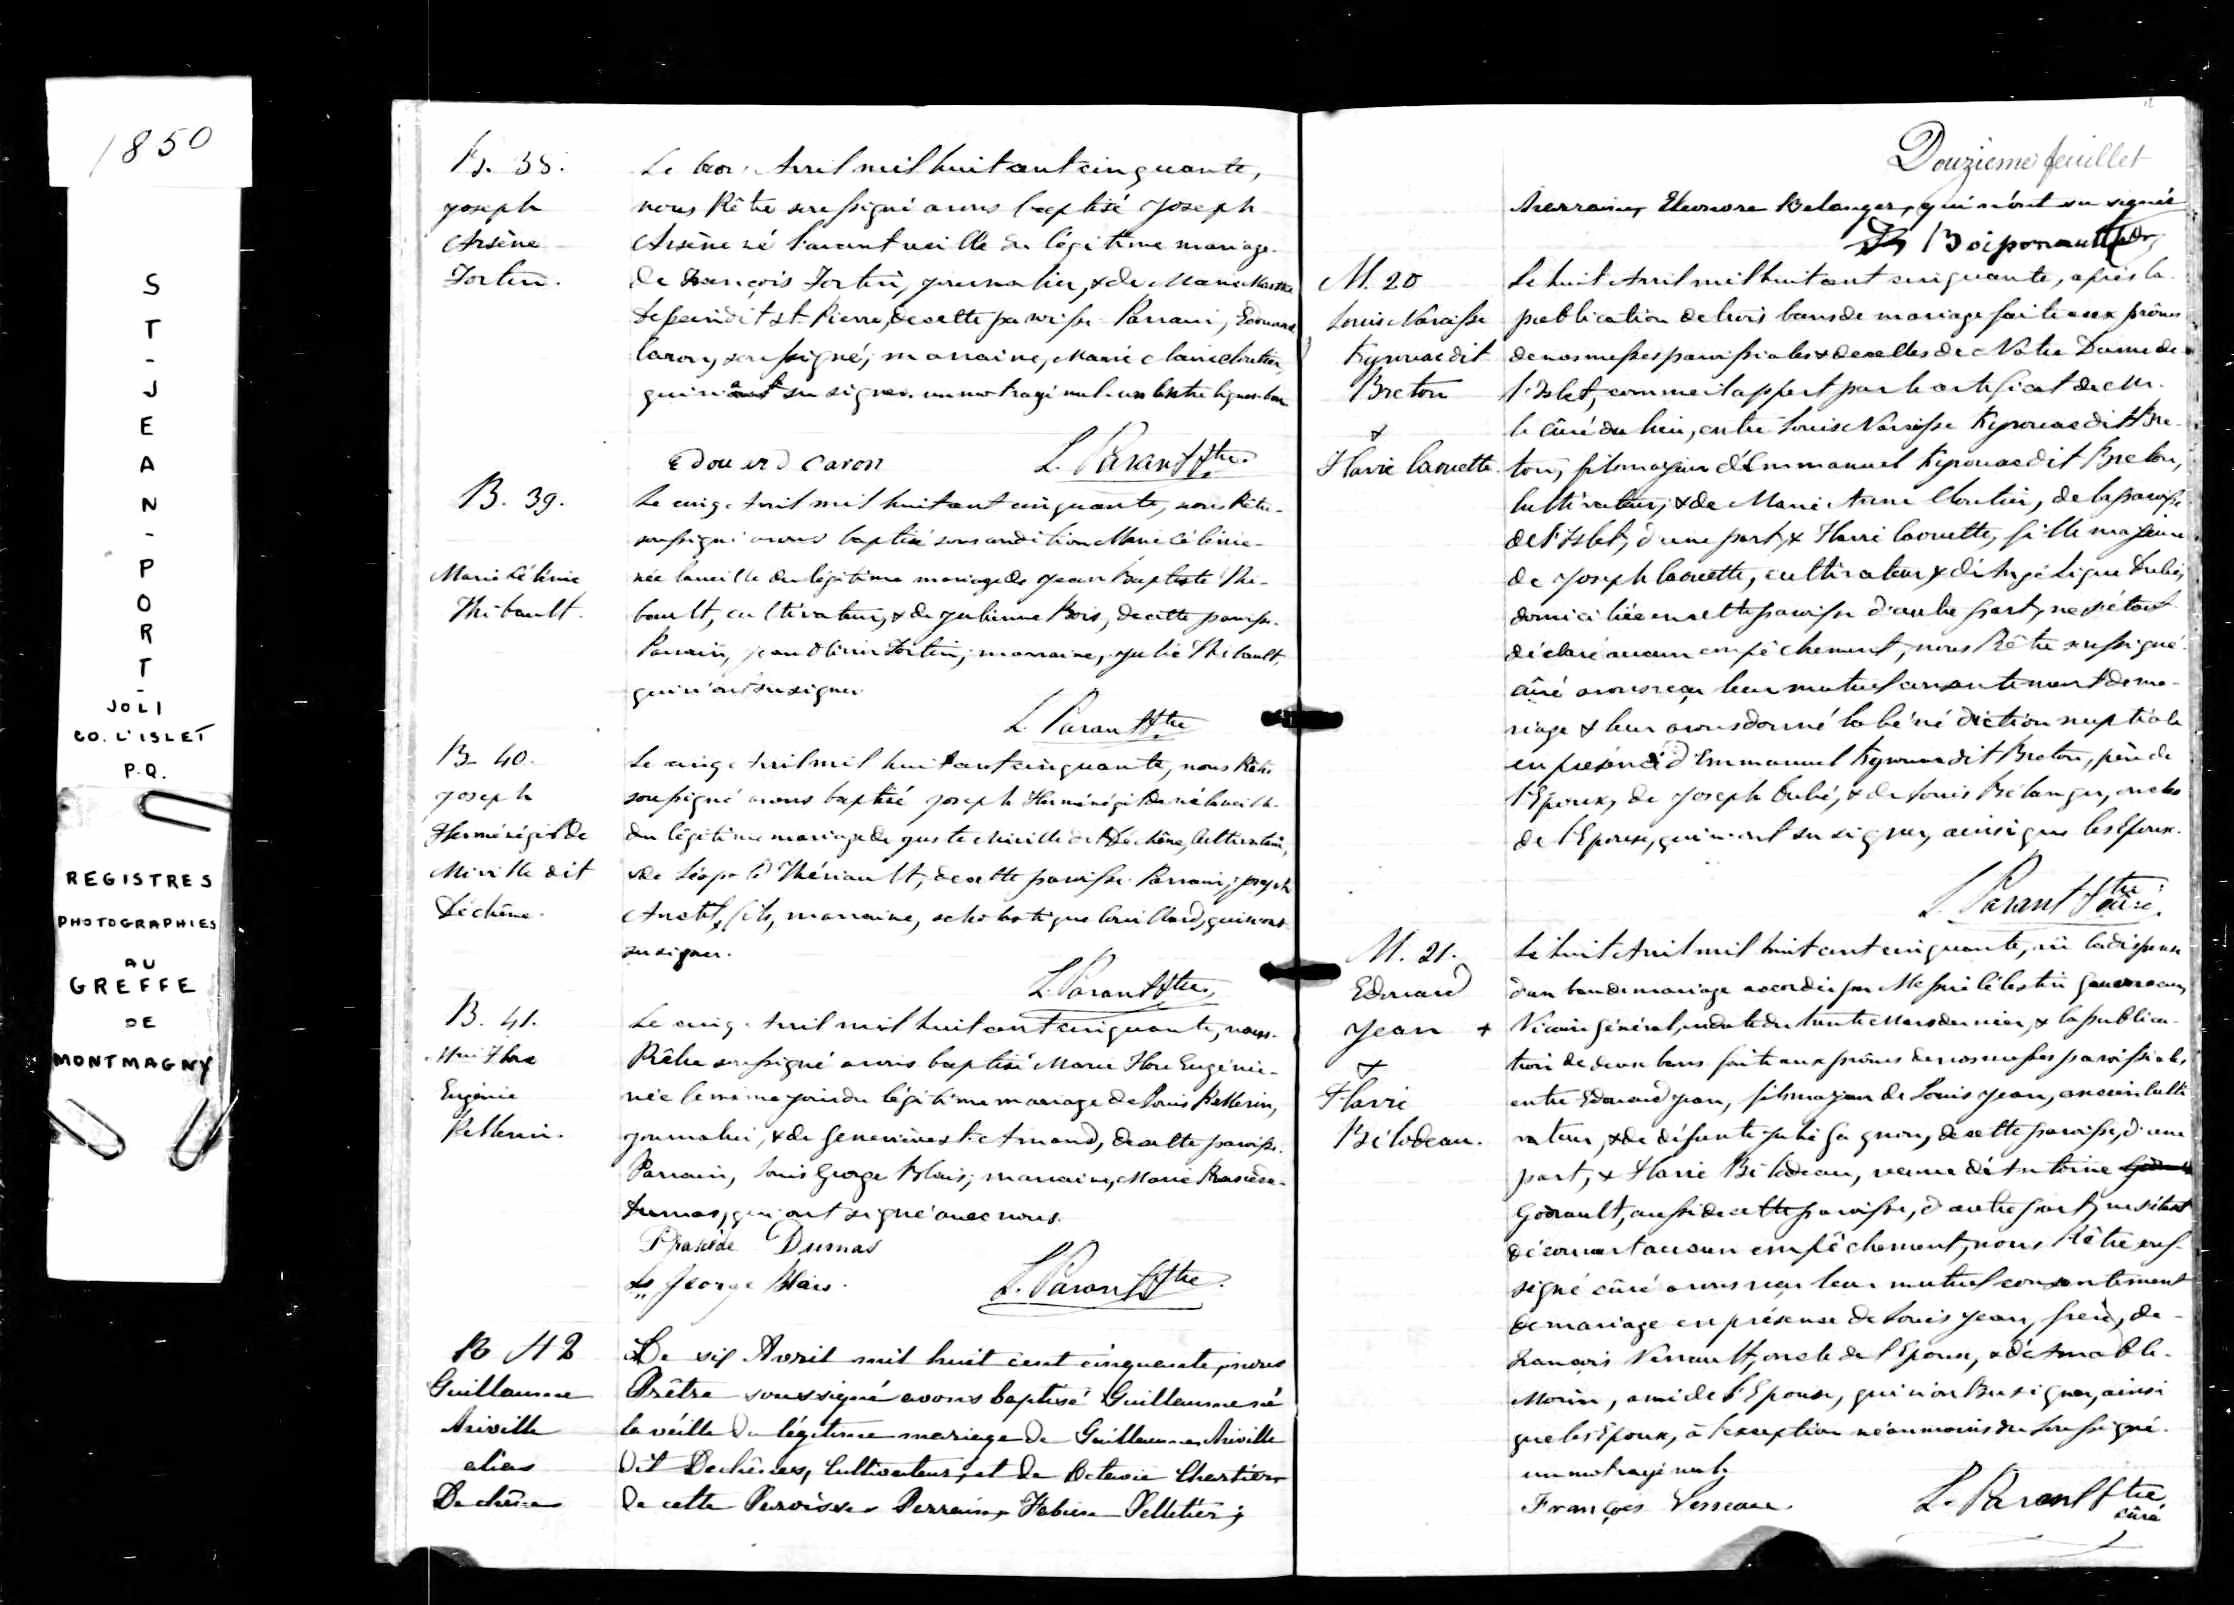 1850
ST-JEAN-PORT-
JOLI
CO. L'ISLET
P.Q.
REGISTRES
PHOTOGRAPHIES
AU
GREFFE
DE
MONTMAGNY
B. 38.
Joseph
Arsène
Fortin.
Le trois Avril mil huit cent cinquante,
nous Prêtre soussigné avons baptisé Joseph
Arsène né l'avant veille du légitime mariage
de François Fortin, journalier, & de Marie Marthe
dit St. Pierre, de cette paroisse Parrain, Edouard
Caron, soussigné; marraine, Marie Claire Cloutier,
qui n'a su signer. un mot rayé nul. un entre lignes bon
Edouard Caron
L. Parant Ptre
B. 39.
Marie Célinie
Thibault.
Le cinq Avril mil huit cent cinquante, nous Prêtre
soussigné avons baptisé sous condition Marie Célinie
née la veille du légitime mariage de Jean Baptiste Thi-
bault, cultivateur, & de Julienne Bois, de cette paroisse.
Parrain, Jean Olivier Fortin; marraine, Julie Thibault,
qui n'ont su signer
L. Parant Ptre
B. 40.
Joseph
Herménégilde
Miville dit
Déchêne.
Le cinq Avril mil huit cent cinquante, nous Prêtre
soussigné avons baptisé Joseph Herménégilde né la veille
du légitime mariage de Juste Miville dit Déchêne, Cultivateur,
& de Thériault, de cette paroisse Parrain, Joseph
Anctil, fils, marraine, scholastique Couillard, qui n'ont
su signer.
L. Parant Ptre
B. 41.
Mrie Flore
Eugénie
Pellerin.
Le cinq Avril mil huit cent cinquante, nous
Prêtre soussigné avons baptisé Marie Flore Eugénie
née le même jour du légitime mariage de Louis Pellerin,
journalier, & de Geneviève St. Amand, de cette paroisse.
Parrain, Louis George Blais; marraine, Marie Praxède
Dumas, qui ont signé avec nous.
Praxède Dumas
Ls George Blais.
L. Parant Ptre.
B 42
Guillaume
Miville
alias
Dechêne
Le six Avril mil huit cent cinquante, nous
Prêtre soussigné avons baptisé Guillaume né
la veille du légitime mariage de Guillaume Miville
dit Dechênes, Cultivateur, et de Octavie Chartier
de cette Paroisse Parrain, Fabien Pelletier;
Douzième feuillet
Marraine, Eleonore Belanger, qui n'ont su signer
Boissonnault Ptre
M. 20
Louis Narcisse
Kyrouac dit
Breton
&
Flavie Caouette.
Le huit Avril mil huit cent cinquante, après la
publication de trois bans de mariage faite aux prônes
de nos messes paroissiales & de celles de Notre Dame de
l'Islet, comme il appert par le certificat de Mr.
le Curé du lieu, entre Louis Narcisse Kyrouac dit Bre-
ton, fils majeur d'Emmanuel Kyrouac dit Breton,
Cultivateur, & de Marie Anne Cloutier, de la paroisse
de l'Islet, d'une part, & Flavie Caouette, fille majeure
de Joseph Caouette, cultivateur, & d'Angélique Dubé,
domiciliée en cette paroisse d'autre part, ne s'étant
déclaré aucun empêchement, nous Prêtre soussigné
curé avons reçu leur mutuel consentement de ma-
riage & leur avons donné la bénédiction nuptiale
en présence d'Emmanuel Kyrouac dit Breton, père de
l'Epoux, de Joseph Dubé, & de Louis Bélanger, oncles
de l'Epouse, qui n'ont su signer, ainsi que les Epoux.
L. Parant Ptre
curé.
M. 21.
Edouard
Jean +
&
Flavie
Bélodeau.
Le huit Avril mil huit cent cinquante, vû la dispense
d'un ban de mariage accordée par Messire Célestin Gauvreau,
Vicaire général, en date du trente Mars dernier, & la publica-
tion de deux bans faite aux prônes de nos messes paroissiales,
entre Edouard Jean, fils majeur de Louis Jean, ancien culti
vateur, & de défunte Julie Gagnon, de cette paroisse, d'une
part, & Flavie Bélodeau, veuve d'Antoine
Godrault, aussi de cette paroisse, d'autre part, ne s'étant
découvert aucun empêchement, nous Prêtre sous-
signé curé avons reçu leur mutuel consentement
de mariage en présence de Louis Jean, frère, de
François Verreault, oncle de l'Epoux, & d'Amable
Morin, ami de l'Epouse, qui n'ont su signer, ainsi
que les Epoux, à l'exception néanmoins du soussigné.
un mot rayé nul.
François Verreau.
L. Parant Ptre,
curé